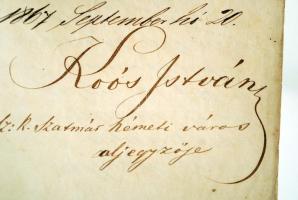 1867 September hó 20.
Koós István
sz: k. Szatmár Németi város
aljegyzője